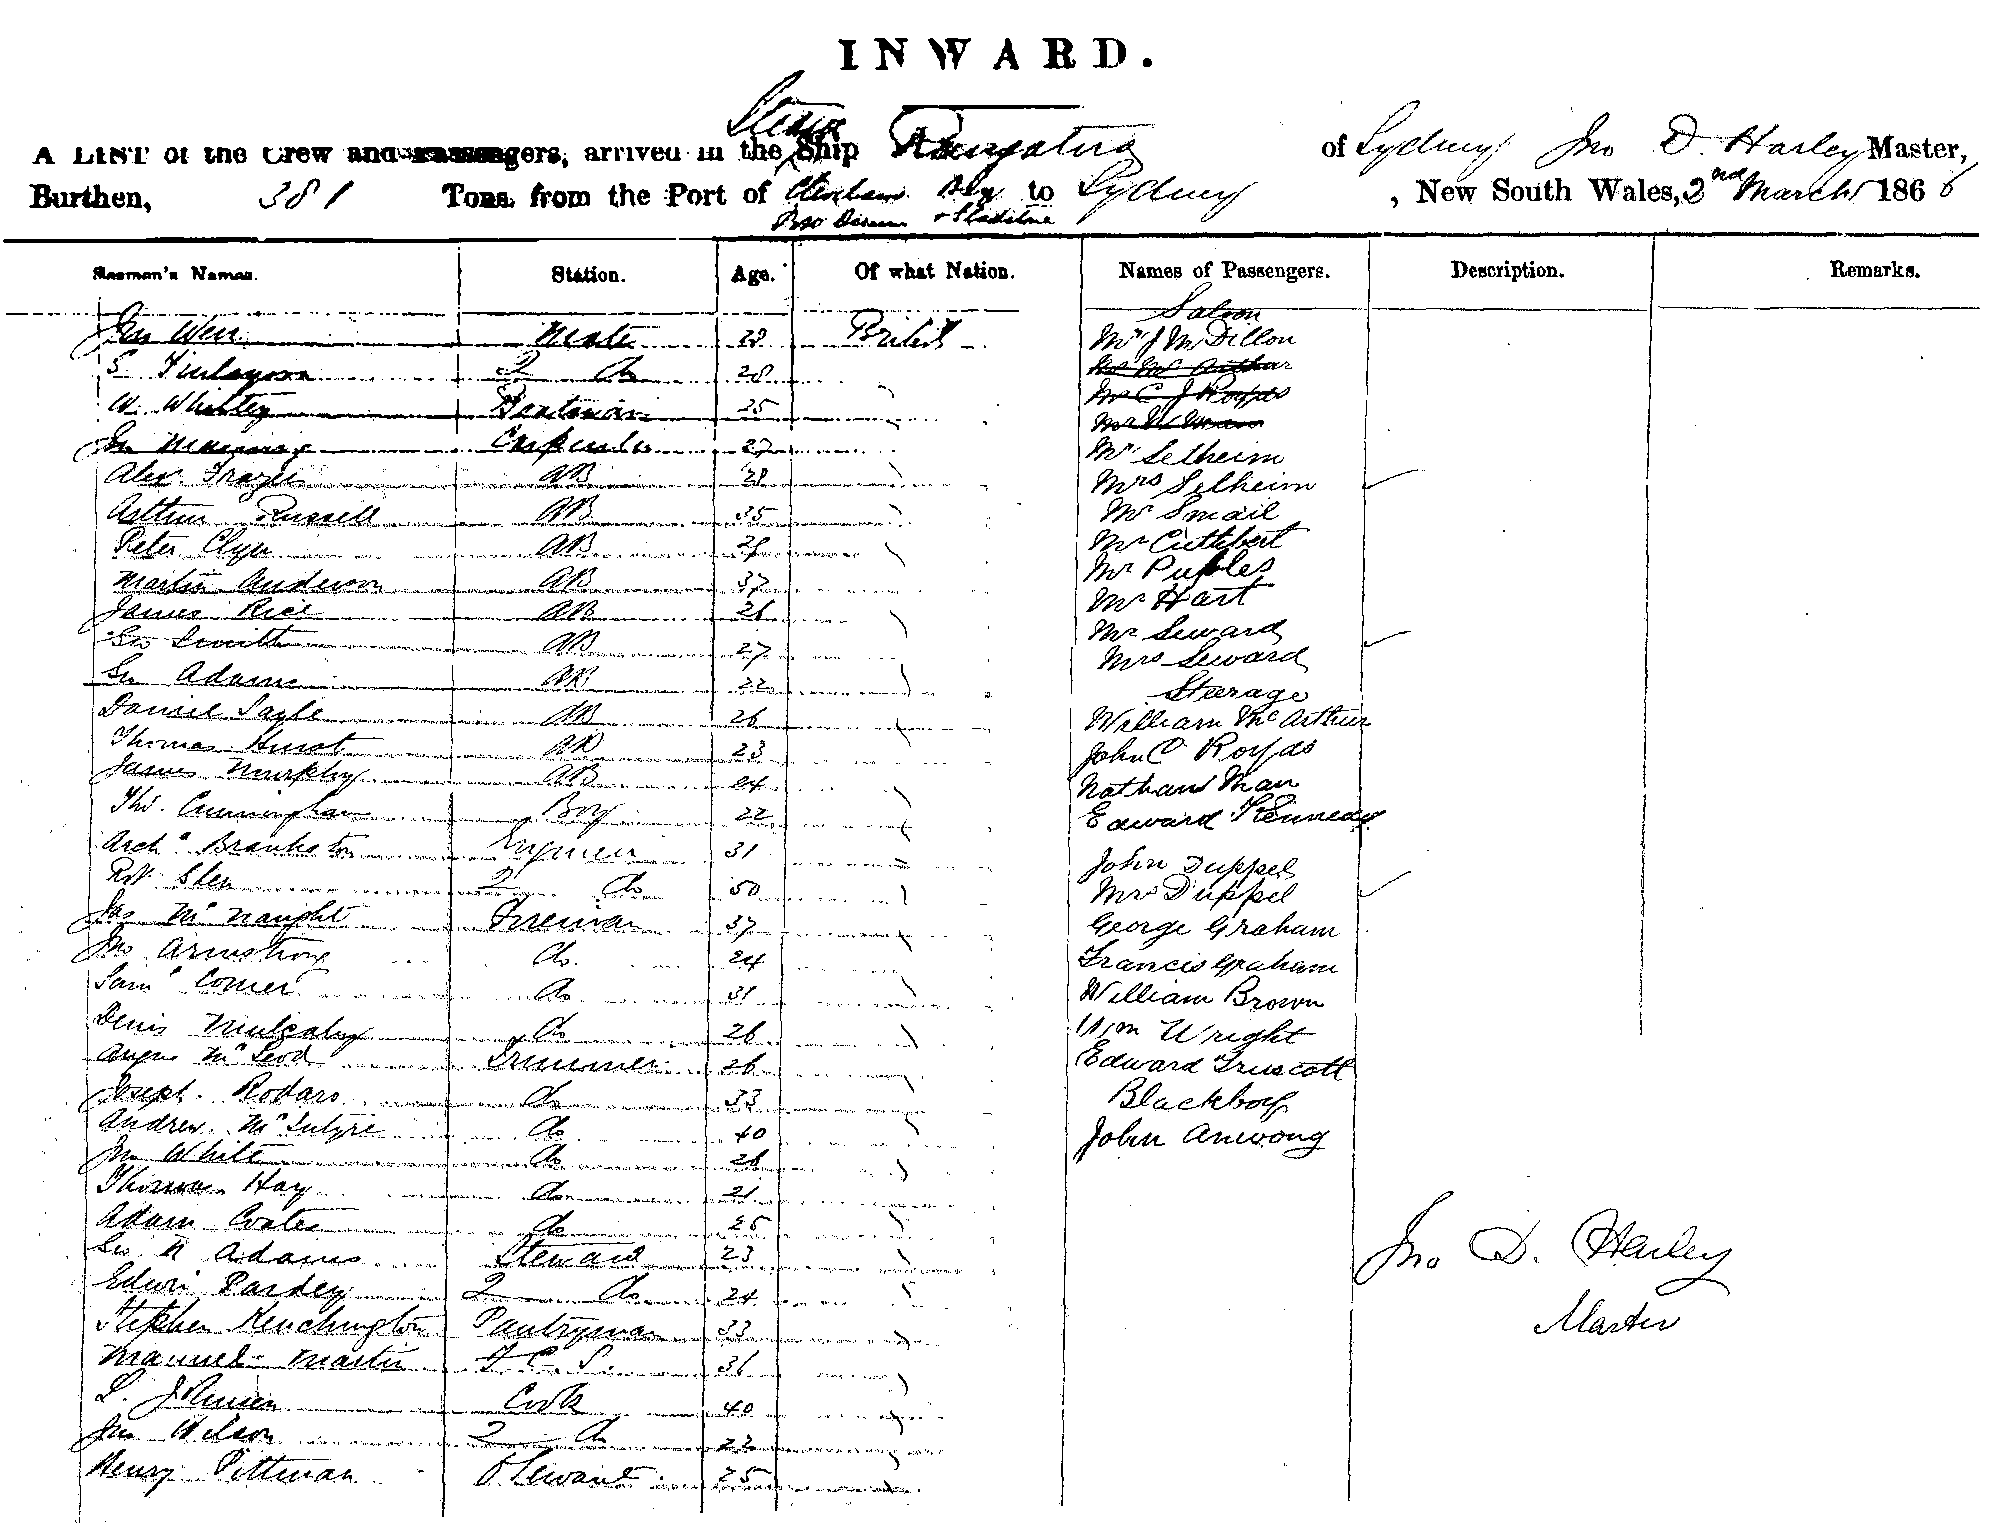 INWARD.
A LIST of the Crew and Passengers, arrived in the Steam Ship Rangatira of Sydney Jno D. Harley Master,
Burthen, 381 Tons, from the Port of Bay to Sydney, New South Wales, 2nd March 1866
Seamen's Names. Station. Age. Of what Nation. Names of Passengers. Description. Remarks.
Saloon
Jno Weir Mate 28 British Mr J McDillon
S. Finlayson 2 Do 28 Mr McArthur
W. Whitley Boatswain 25 Mr C J Royds
Jno Carpenter 27 Mr N Man
Alex. Frazer AB 28 Mr Selheim
Mrs Selheim
Arthur Russell AB 35 Mr Smail
Peter Clyne AB 29 Mr Cuthbert
Martin Anderson AB 37 Mr Peebles
James Rice AB 26 Mr Hart
Geo Smith AB 27 Mr Seward
Mrs Seward
Jno Adams AB 22 Steerage
Daniel Sayle AB 26 William McArthur
Thomas Hurst AB 23 John C Royds
James Murphy AB 24 Nathan Man
Thos. Cunningham Boy 22 Edward Kennedy
Archd Brankston Engineer 31 John Duppel
Rbt Glen 2 Do 50 Mrs Duppel
Jas McNaught Fireman 37 George Graham
Jno Armstrong Do 24 Francis Graham
Saml Comer Do 31 William Brown
Denis Mulcahy Do 26 Wm Wright
Angus McLeod Trimmer 26 Edward Truscott
Joseph Rodars Do 33 Blackboy
Andrew McIntyre Do 40 John Amwong
Jno White Do 28
Thomas Hay Do 21
Adam Coates Do 25
Geo N Adams Steward 23
Edwin Pardey 2 Do 24
Stephen Kenchington Pantryman 33
Manuel Martin F. C. S. 36
L. Johnson Cook 40
Jno Wilson 2 Do 22
Henry Pittman O Servant 25
Jno D. Harley
Master